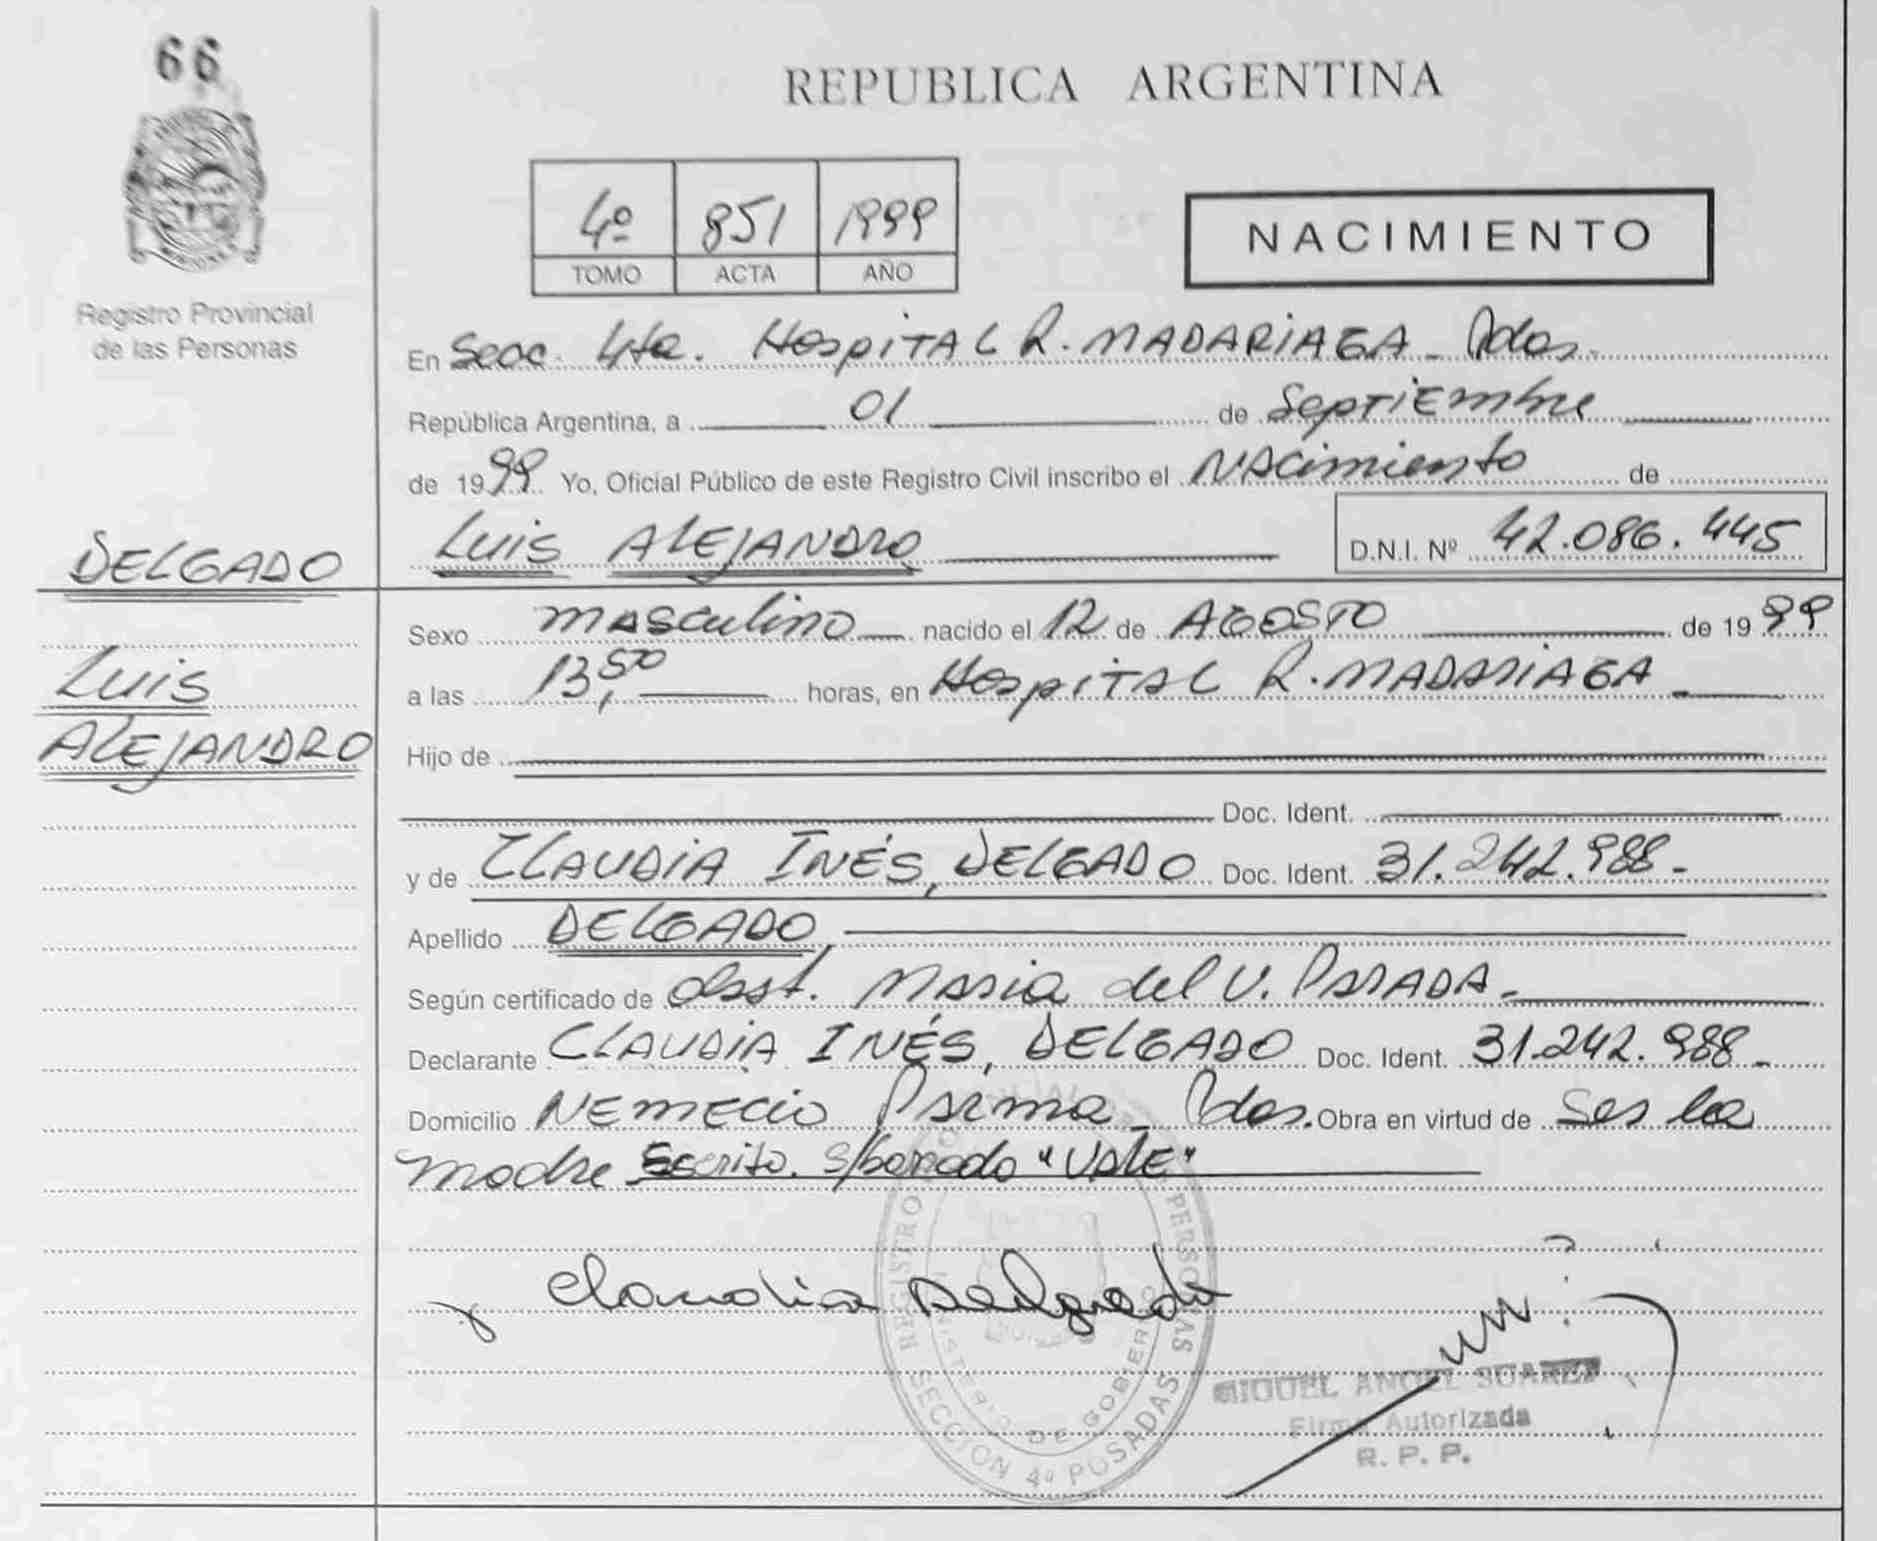 66
REPUBLICA ARGENTINA
4º 851 1999
TOMO ACTA AÑO
NACIMIENTO
Registro Provincial
de las Personas
En Secc. 4ta. Hospital R. MADARIAGA - Pdas.
República Argentina, a 01 de Septiembre
de 1999 Yo, Oficial Público de este Registro Civil inscribo el NAcimiento de
DELGADO
Luis ALEJANDRO D.N.I. Nº 42.086.445
Luis
ALEJANDRO
Sexo masculino nacido el 12 de AGOSTO de 1999
a las 13,50 horas, en Hospital R. MADARIAGA
Hijo de
Doc. Ident.
y de CLAUDIA INÉS, DELGADO Doc. Ident. 31.242.988-
Apellido DELGADO
Según certificado de obst. Maria del V. PARADA-
Declarante CLAUDIA INÉS, DELGADO Doc. Ident. 31.242.988-
Domicilio NEMECIO PARMA - Pdas. Obra en virtud de Ser la
madre Escrito s/borrado "VALE"
Claudia Delgado
REGISTRO PERSONAS
MINISTERIO DE GOBIERNO
SECCION 4º POSADAS
MIGUEL ANGEL SUAREZ
Firma Autorizada
R. P. P.